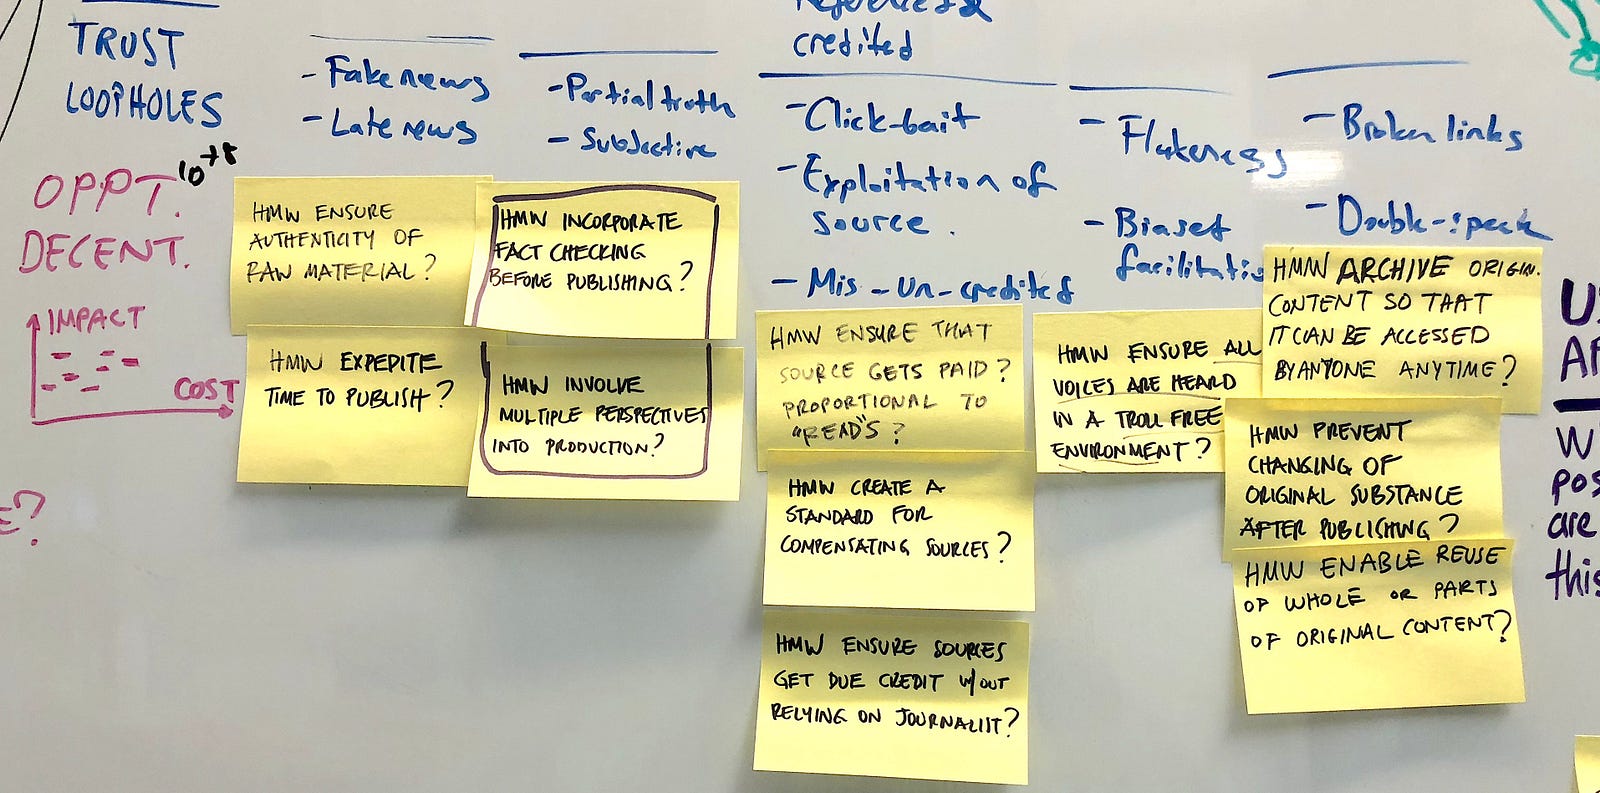 credited
TRUST
LOOPHOLES
- Fake news
- Late news
- Partial truth
- Subjective
- Click-bait
- Exploitation of
source.
- Mis-Un-credited
- Flakeness
- Biased
facilitatio
- Broken links
- Double-speak
OPPT.
DECENT.
IMPACT
COST
HMW ENSURE
AUTHENTICITY OF
RAW MATERIAL?
HMW EXPEDITE
TIME TO PUBLISH?
HMW INCORPORATE
FACT CHECKING
BEFORE PUBLISHING?
HMW INVOLVE
MULTIPLE PERSPECTIVES
INTO PRODUCTION?
HMW ENSURE THAT
SOURCE GETS PAID?
PROPORTIONAL TO
"READ"S?
HMW CREATE A
STANDARD FOR
COMPENSATING SOURCES?
HMW ENSURE SOURCES
GET DUE CREDIT W/OUT
RELYING ON JOURNALIST?
HMW ENSURE ALL
VOICES ARE HEARD
IN A TROLL FREE
ENVIRONMENT?
HMW ARCHIVE ORIGIN.
CONTENT SO THAT
IT CAN BE ACCESSED
BY ANYONE ANYTIME?
HMW PREVENT
CHANGING OF
ORIGINAL SUBSTANCE
AFTER PUBLISHING?
HMW ENABLE REUSE
OF WHOLE OR PARTS
OF ORIGINAL CONTENT?
are
this